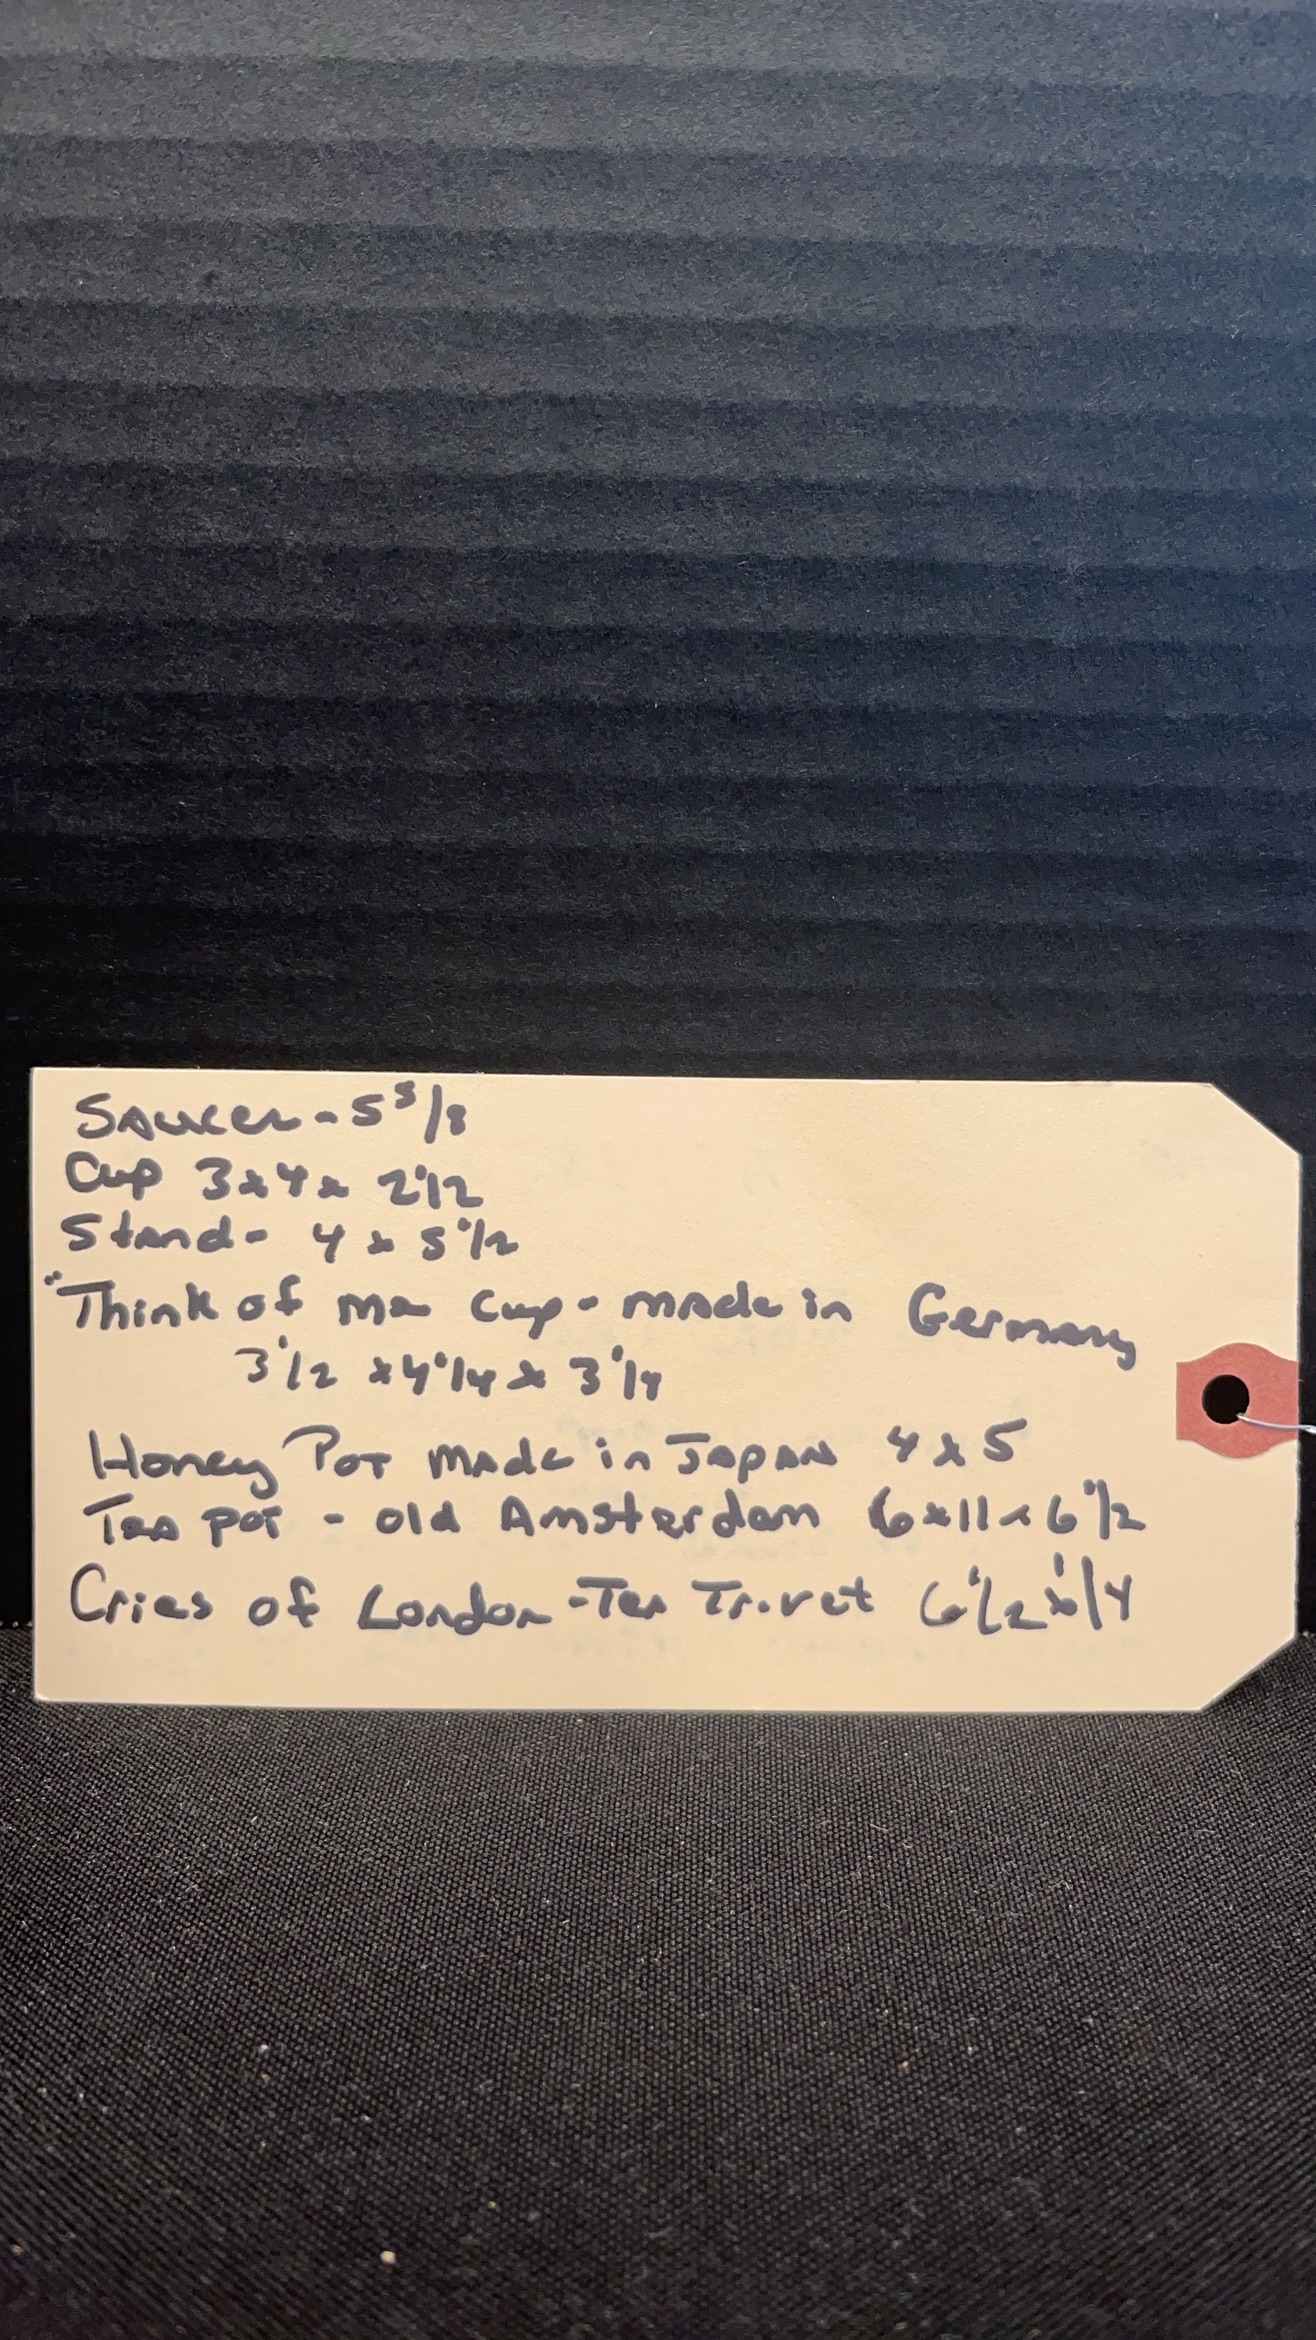 Saucer - 5 3/8
Cup 3 x 4 x 2 1/2
Stand - 4 x 5 1/2
"Think of me Cup - made in Germany
3 1/2 x 4 1/4 x 3 1/4
Honey Pot made in Japan 4 x 5
Tea pot - old Amsterdam 6 x 11 x 6 1/2
Cries of London - Tea Trivet 6 1/2 x 1/4